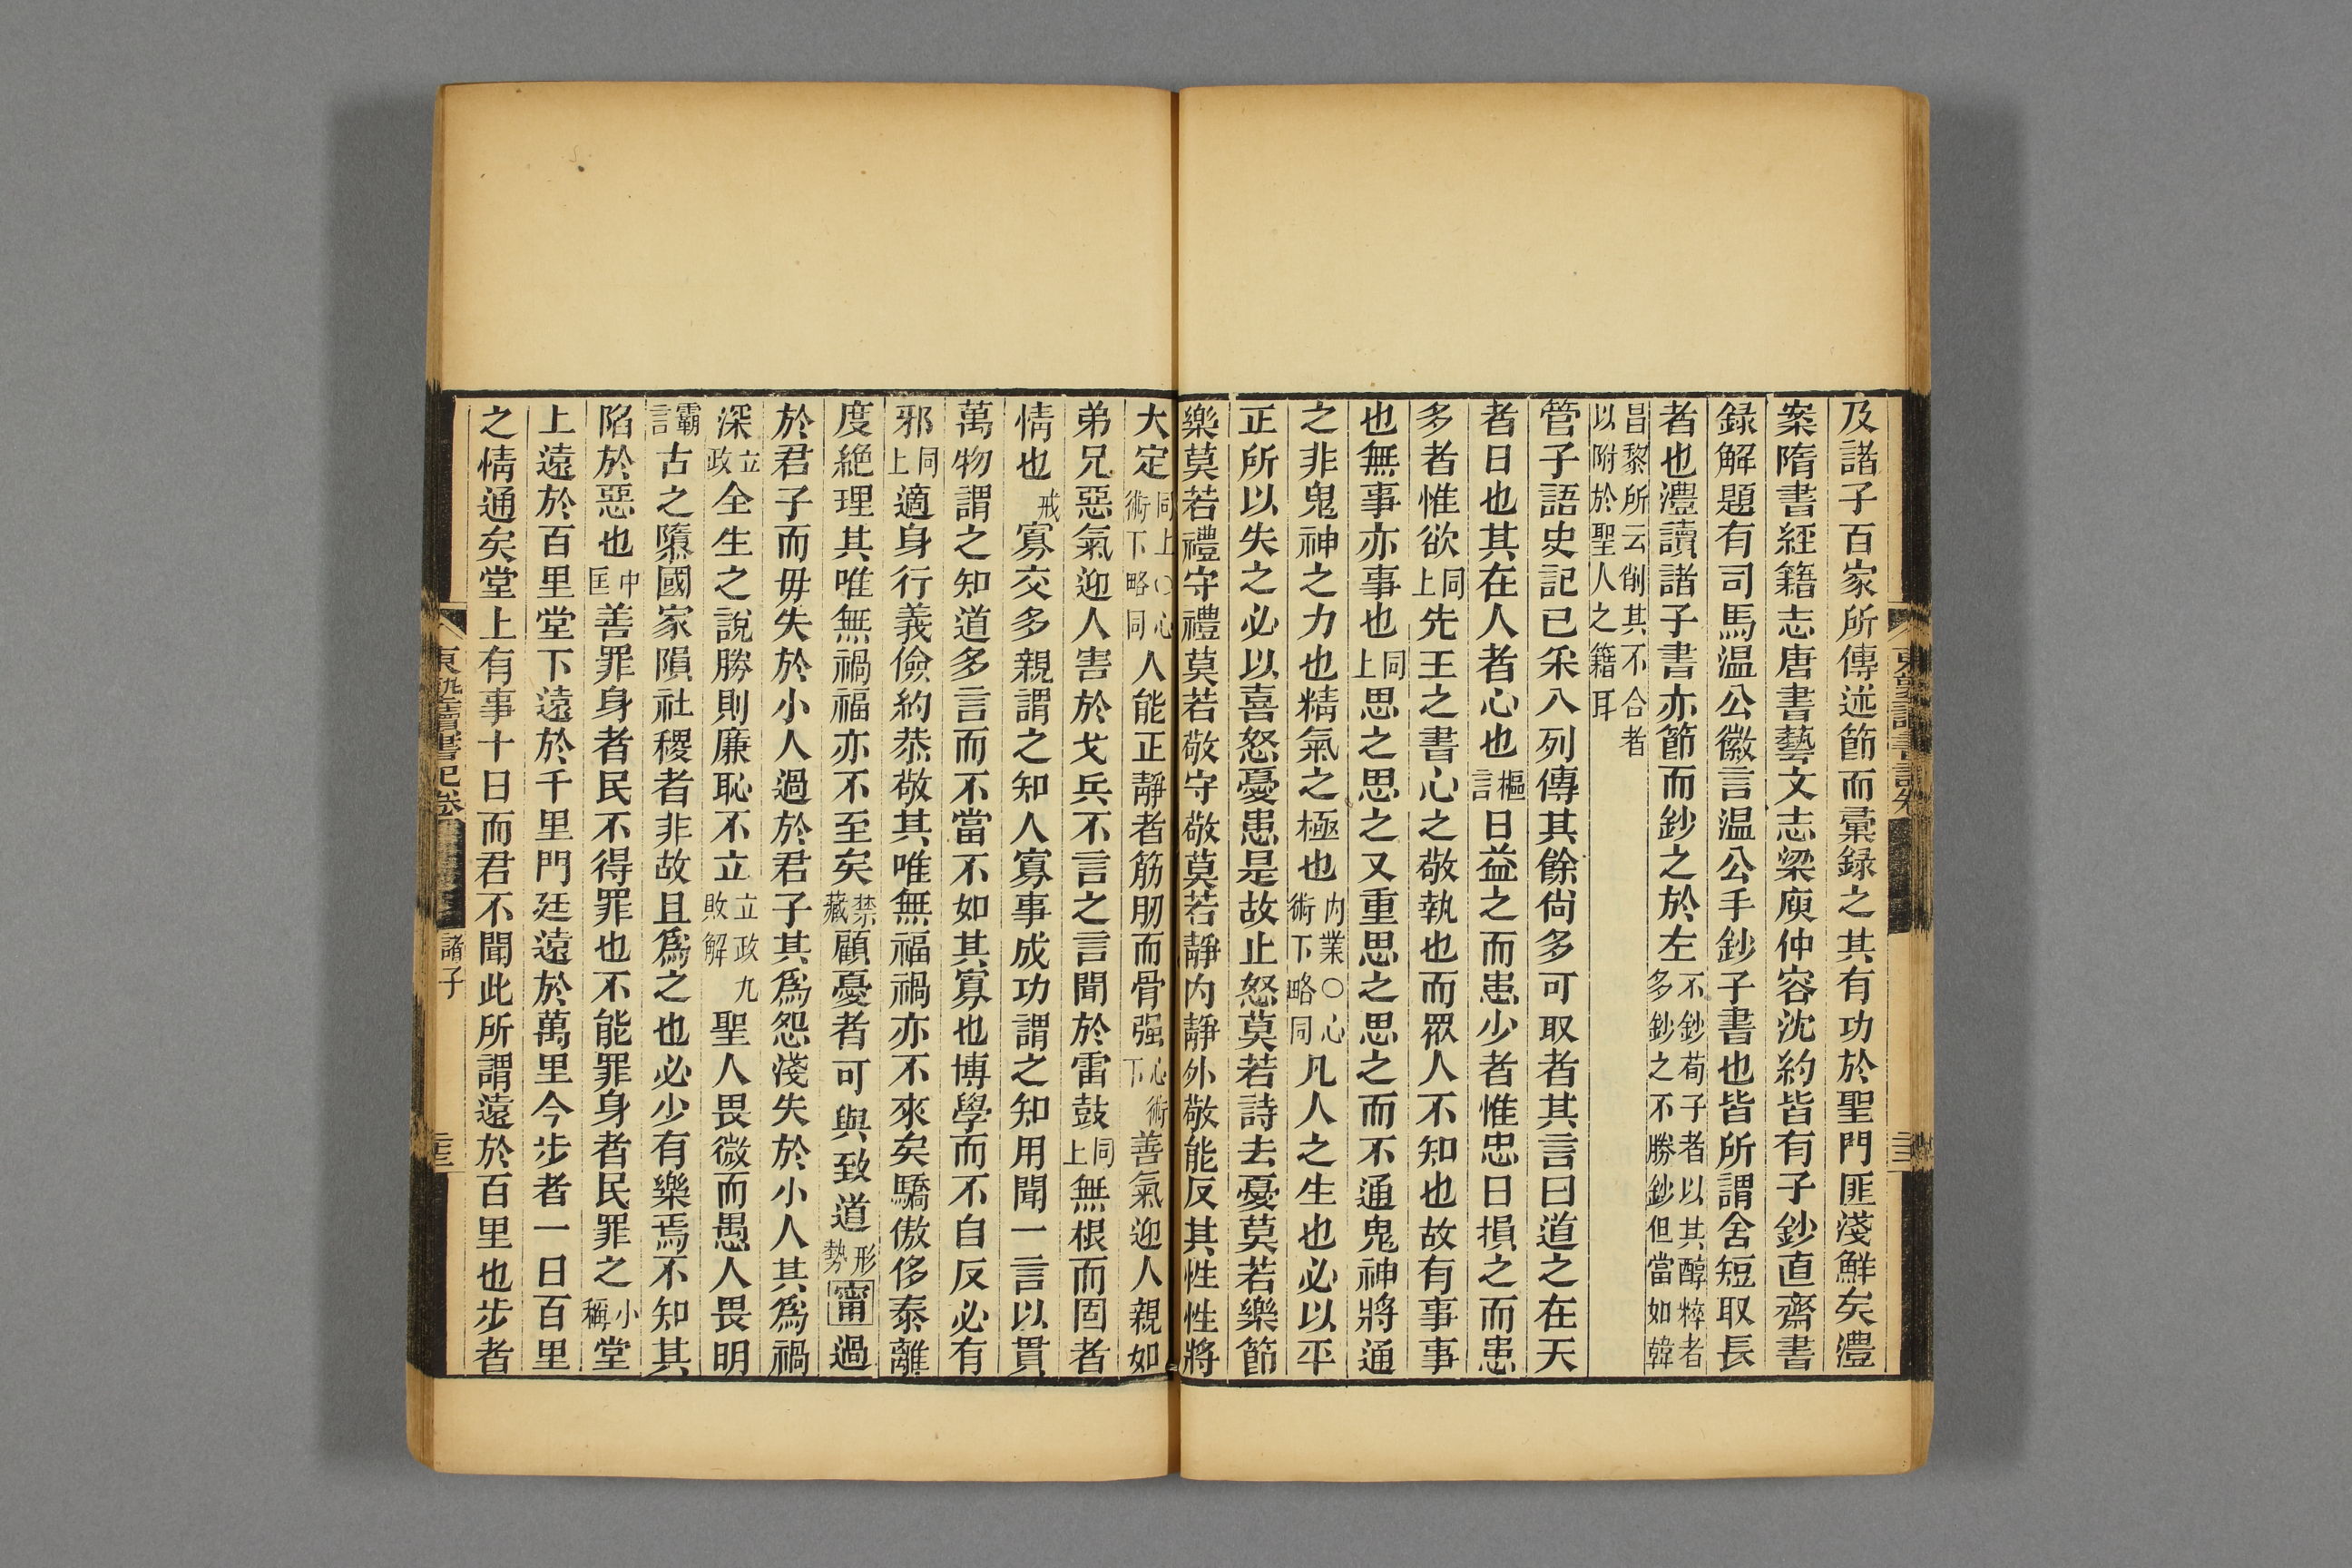 及諸子百家所傳述節而彚録之其有功於聖門匪淺鮮矣澧
案隋書經籍志唐書藝文志梁庾仲容沈約皆有子鈔直齋書
録解題有司馬温公徽言温公手鈔子書也皆所謂舍短取長
者也澧讀諸子書亦節而鈔之於左不鈔荀子者以其醇粹者多鈔之不勝鈔但當如韓
昌黎所云削其不合者以附於聖人之籍耳
管子語史記已采入列傳其餘尙多可取者其言曰道之在天
者日也其在人者心也樞言日益之而患少者惟忠日損之而患
多者惟欲同上先王之書心之敬執也而眾人不知也故有事事
也無事亦事也同上思之思之又重思之思之而不通鬼神將通
之非鬼神之力也精氣之極也内業〇心術下略同凡人之生也必以平
正所以失之必以喜怒憂患是故止怒莫若詩去憂莫若樂節
樂莫若禮守禮莫若敬守敬莫若靜内靜外敬能反其性性將
大定同上〇心術下略同人能正靜者筋肕而骨强心術下善氣迎人親如
弟兄惡氣迎人害於戈兵不言之言聞於雷鼓同上無根而固者
情也戒寡交多親謂之知人寡事成功謂之知用聞一言以貫
萬物謂之知道多言而不當不如其寡也博學而不自反必有
邪同上適身行義儉約恭敬其唯無福禍亦不來矣驕傲侈泰離
度絶理其唯無禍福亦不至矣禁藏顧憂者可與致道形勢甯過
於君子而毋失於小人過於君子其爲怨淺失於小人其爲禍
深立政全生之說勝則廉恥不立立政九敗解聖人畏微而愚人畏明
霸言古之隳國家隕社稷者非故且爲之也必少有樂焉不知其
陷於惡也中匡善罪身者民不得罪也不能罪身者民罪之小稱堂
上遠於百里堂下遠於千里門廷遠於萬里今步者一日百里
之情通矣堂上有事十日而君不聞此所謂遠於百里也步者
東塾讀書記卷
諸子